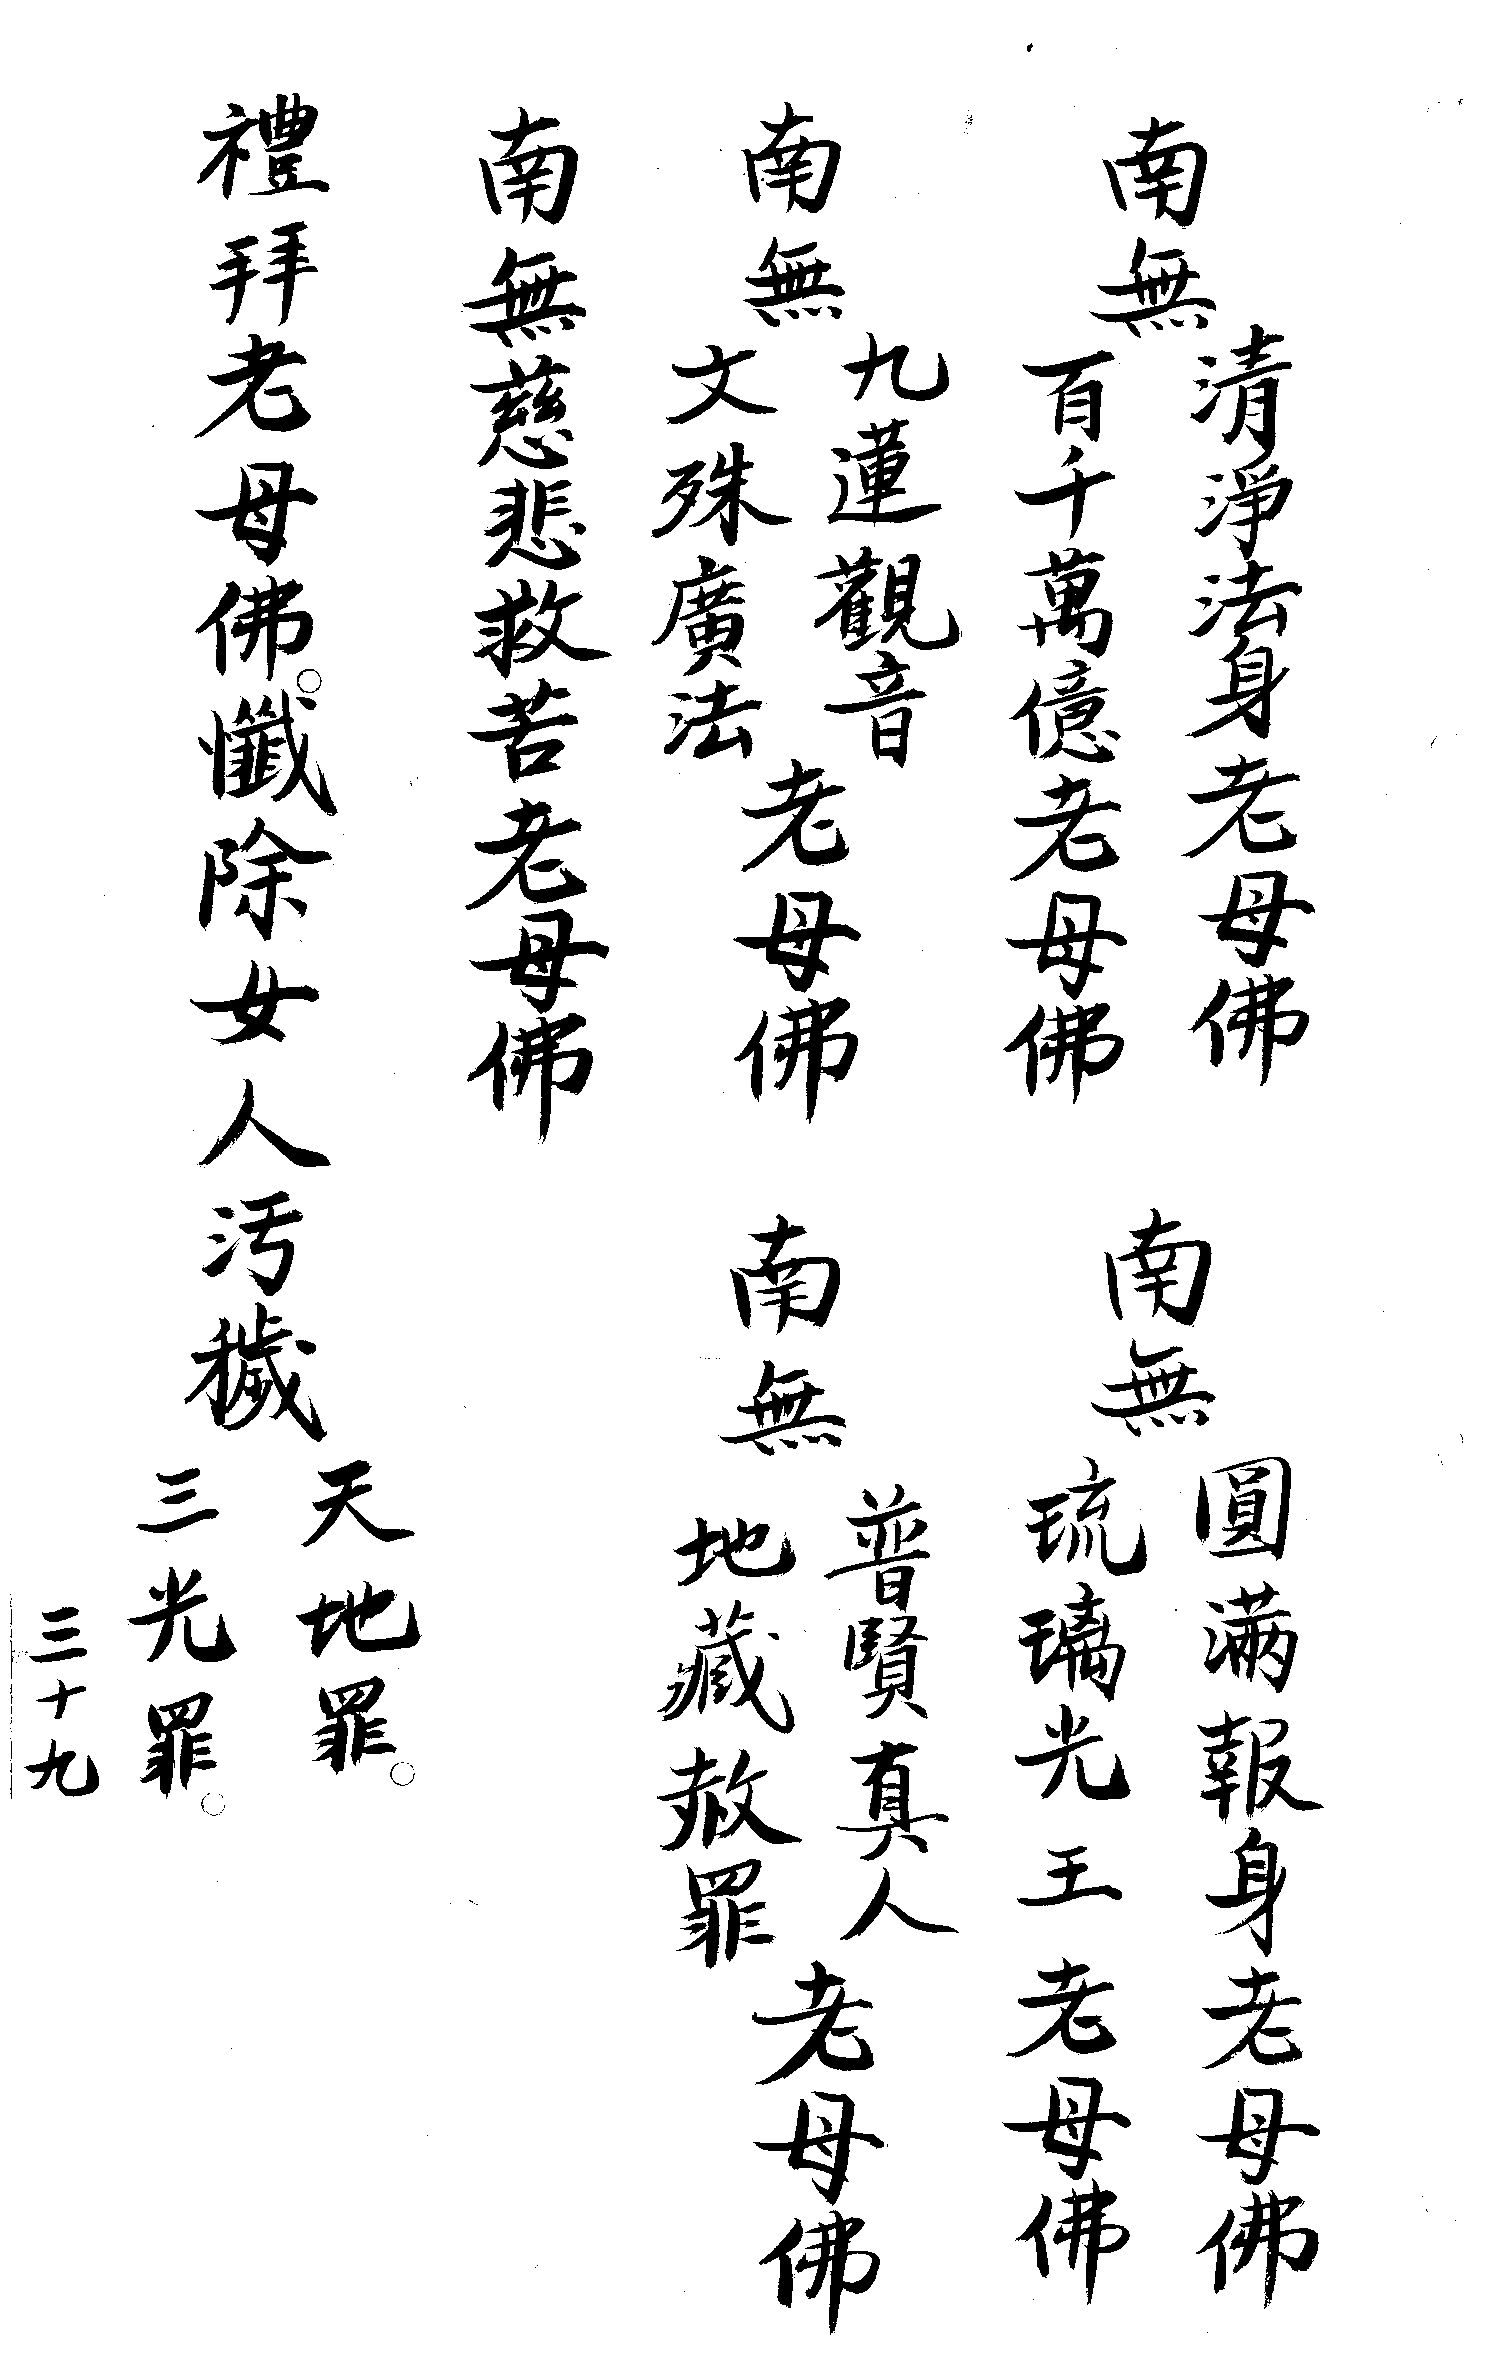 南無
清淨法身老母佛
百千萬億老母佛
南無
圓滿報身老母佛
琉璃光王老母佛
南無
九蓮觀音
文殊廣法
老母佛
南無
普賢真人
地藏赦罪
老母佛
南無慈悲救苦老母佛
禮拜老母佛。懺除女人污穢
天地罪。
三光罪。
三十九